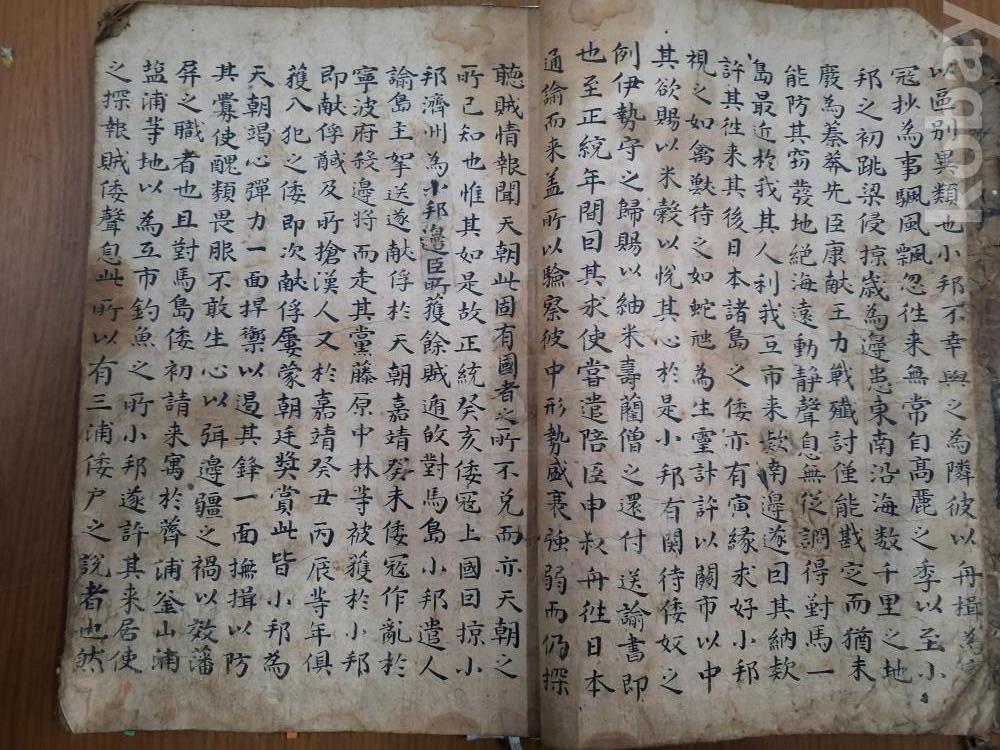 以區別異類也小邦不幸與之為隣彼以舟楫為
冦抄為事颿風飄忽往来無常自髙麗之季以至小
邦之初跳梁侵掠歳為邊患東南沿海数千里之地
廢為蓁莽先臣康献王力戰殲討僅能戡㝎而猶未
能防其竊發地絕海遠動静聲息無従調得對馬一
島最近於我其人利我互市来款南邉遂曰其納款
許其徃来其後日本諸島之倭亦有寅縁求好小邦
視之如禽獣待之如蛇虺為生霊計許以關市以中
其欲賜以米穀以悅其心於是小邦有関待倭奴之
例伊勢守之歸賜以紬米壽藺僧之還付送諭書即
也至正統年間曰其求使甞遣陪臣申叔舟徃日本
通諭而来盖所以驗察彼中形勢盛衰強弱而仍探
聽賊情報聞天朝此固有國者之所不免而亦天朝之
所已知也惟其如是故正統癸亥倭冦上國曰掠小
邦濟州為小邦邉臣所獲餘賊逅皎對馬島小邦遣人
諭島主挐送遂献俘於天朝嘉靖癸未倭冦作亂於
寧波府殺邉将而走其黨藤原中林等被獲於小邦
即献俘馘及所搶漢人又於嘉靖癸丑丙辰等年俱
獲入犯之倭即次献俘屢蒙朝廷獎賞此皆小邦為
天朝竭心殫力一面捍禦以遏其鋒一面撫揖以防
其釁使醜類畏服不敢生心以弭邉疆之禍以效藩
屏之職者也且對馬島倭初請来寓於薺浦釜山浦
盐浦等地以為互市釣魚之所小邦遂許其来居使
之探報賊倭聲息此所以有三浦倭户之說者也然